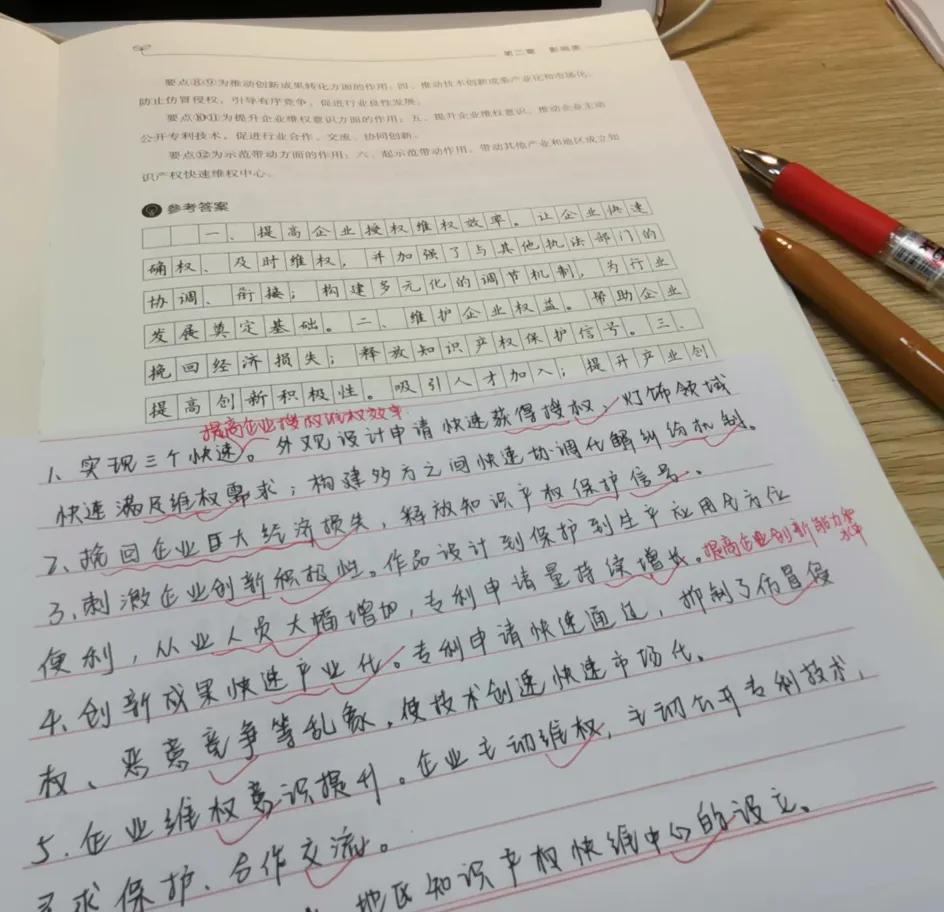 第二章 影响类
要点⑧⑨为推动创新成果转化方面的作用：四、推动技术创新成果产业化和市场化，
防止仿冒侵权，引导有序竞争，促进行业良性发展。
要点⑩⑪为提升企业维权意识方面的作用：五、提升企业维权意识。推动企业主动
公开专利技术，促进行业合作、交流、协同创新。
要点⑫为示范带动方面的作用：六、起示范带动作用。带动其他产业和地区成立知
识产权快速维权中心。
参考答案
一、提高企业授权维权效率。让企业快速
确权、及时维权，并加强了与其他执法部门的
协调、衔接；构建多元化的调节机制，为行业
发展奠定基础。二、维护企业权益。帮助企业
挽回经济损失；释放知识产权保护信号。三、
提高创新积极性。吸引人才加入；提升产业创
提高企业授权维权效率
1、实现三个快速。外观设计申请快速获得授权；灯饰领域
快速满足维权需求；构建多方之间快速协调化解纠纷机制。
2、挽回企业巨大经济损失，释放知识产权保护信号。
3、刺激企业创新积极性。作品设计到保护到生产应用全方位
便利，从业人员大幅增加，专利申请量持续增长。提高企业创新能力和
水平
4、创新成果快速产业化。专利申请快速通过，抑制了仿冒侵
权、恶意竞争等乱象，使技术创速快速市场化。
5、企业维权意识提升。企业主动维权，主动公开专利技术，
寻求保护、合作交流。
地区知识产权快维中心的设立。